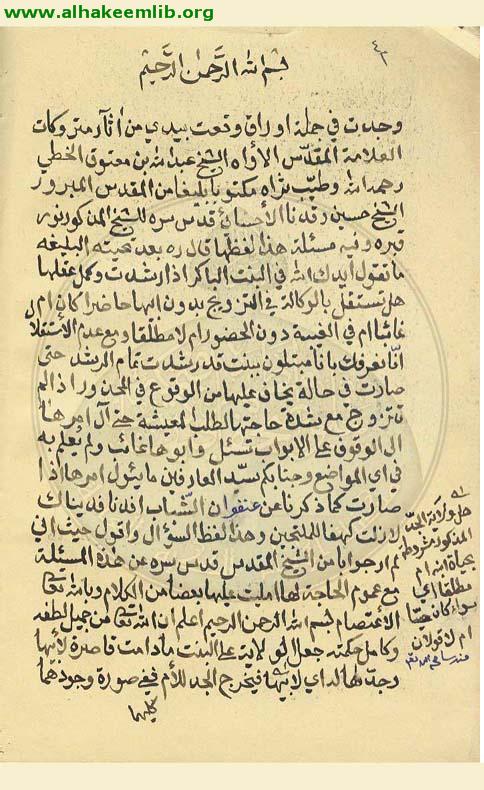 www.alhakeemlib.org
٤٢
بسم الله الرحمن الرحيم
وجدت في جملة اوراق وقعت بيدي من آثار متروكات
العلامة المقدّس الأوّاه الشيخ عبد الله بن معتوق الخطي
رحمه الله وطيّب ثراه مكتوبا بليغا من المقدس المبرور
الشيخ حسين وفدنا الأحسائي قدّس سره للشيخ المذكور نور
قبره وفيه مسئلة هذا لفظها قال ره بعد تحيته البليغه
ما تقول أيدك الله في البنت الباكر اذا رشدت وكمل عقلها
هل تستقل بالوكالة في التزويج بدون ابيها حاضرا كان ام
غائبا ام في الغيبة دون الحضور ام لا مطلقا ومع عدم الاستقلال
انّا نعرفك بانا مبتلون ببنت قد رشدت تمام الرشد حتى
صارت في حالة يخاف عليها من الوقوع في المحذور اذا لم
تتزوج مع شدة حاجتها لطلب المعيشة حتى آل امرها
الى الوقوف على الابواب تسئل وابوها غائب ولم يعلم به
في اي المواضع وجنابكم سيّد العارفين ما يئول امرها اذا
صارت كما ذكرنا عن عنفوان الشّباب افدنا فديناك
لا زلت كهفا للملتجين وهذا لفظ السؤال واقول حيث اني
لم ار جوابا من الشيخ المقدس قدس سره عن هذه المسئلة
مع عموم الحاجة لها امليت عليها بعضا من الكلام وبالله تعالى
الاعتصام بسم الله الرحمن الرحيم اعلم ان الله تعالى من جميل لطفه
وكامل حكمته جعل الولاية على البنت ما دامت قاصرة لأبيها
وجدها لأبيها فيخرج الجد للأم ففي صورة وجودهما
كليهما
هل ولاية الجدّ
المذكور مشروطة
بحياة ابنه ام
مطلقا اي
سواء كان حيّا
ام لا قولان